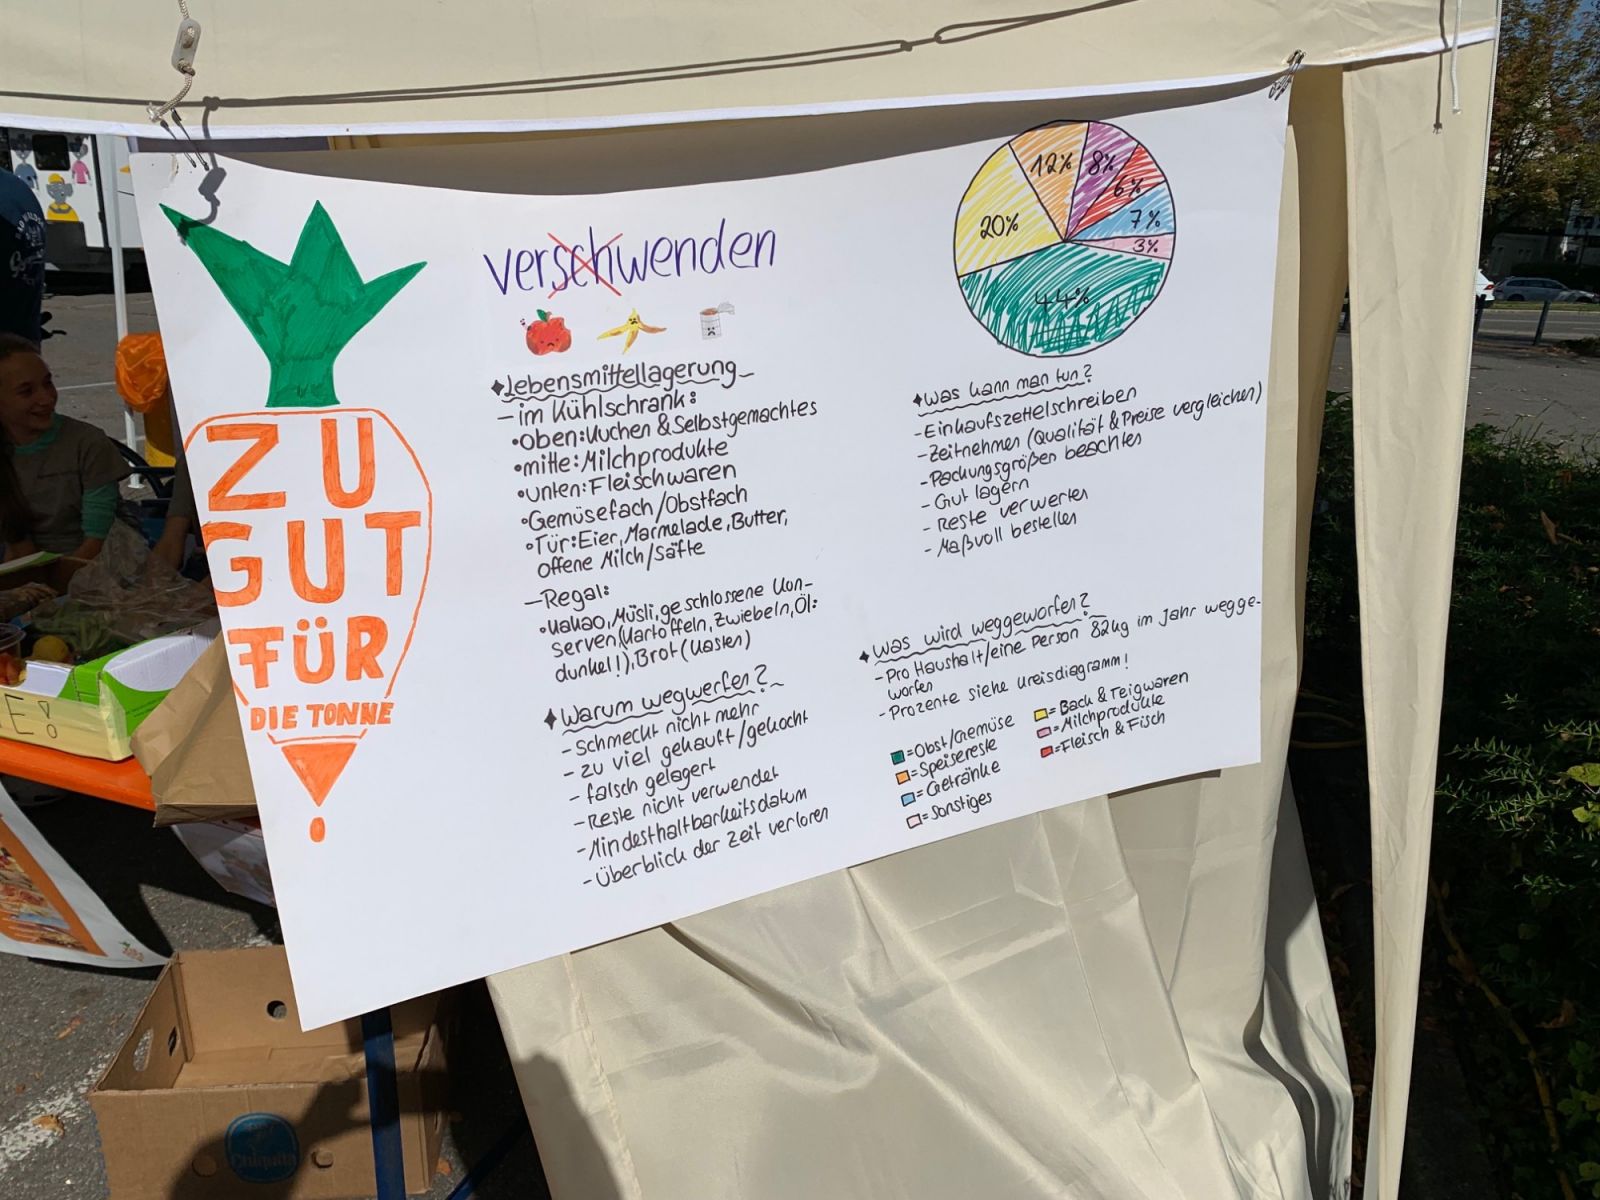 ZU
GUT
FÜR
DIE TONNE
verschwenden
Lebensmittellagerung
- im Kühlschrank:
• Oben: Kuchen & Selbstgemachtes
• mitte: Milchprodukte
• unten: Fleischwaren
• Gemüsefach/Obstfach
• Tür: Eier, Marmelade, Butter,
offene Milch/Säfte
- Regal:
• Kakao, Müsli, geschlossene Kon-
serven, (Kartoffeln, Zwiebeln, Öl:
dunkel!), Brot (Kasten)
Warum wegwerfen?
- Schmeckt nicht mehr
- zu viel gekauft/gekocht
- falsch gelagert
- Reste nicht verwendet
- Mindesthaltbarkeitsdatum
- Überblick der Zeit verloren
12%
8%
6%
20%
7%
3%
44%
Was kann man tun?
- Einkaufszettelschreiben
- Zeitnehmen (Qualität & Preise vergleichen)
- Packungsgrößen beachten
- Gut lagern
- Reste verwerten
- Maßvoll bestellen
Was wird weggeworfen?
- Pro Haushalt/eine Person 82kg im Jahr wegge-
worfen
- Prozente siehe Kreisdiagramm!
= Obst/Gemüse
= Speisereste
= Getränke
= Sonstiges
= Back & Teigwaren
= Milchprodukte
= Fleisch & Fisch
E!
Chiquita